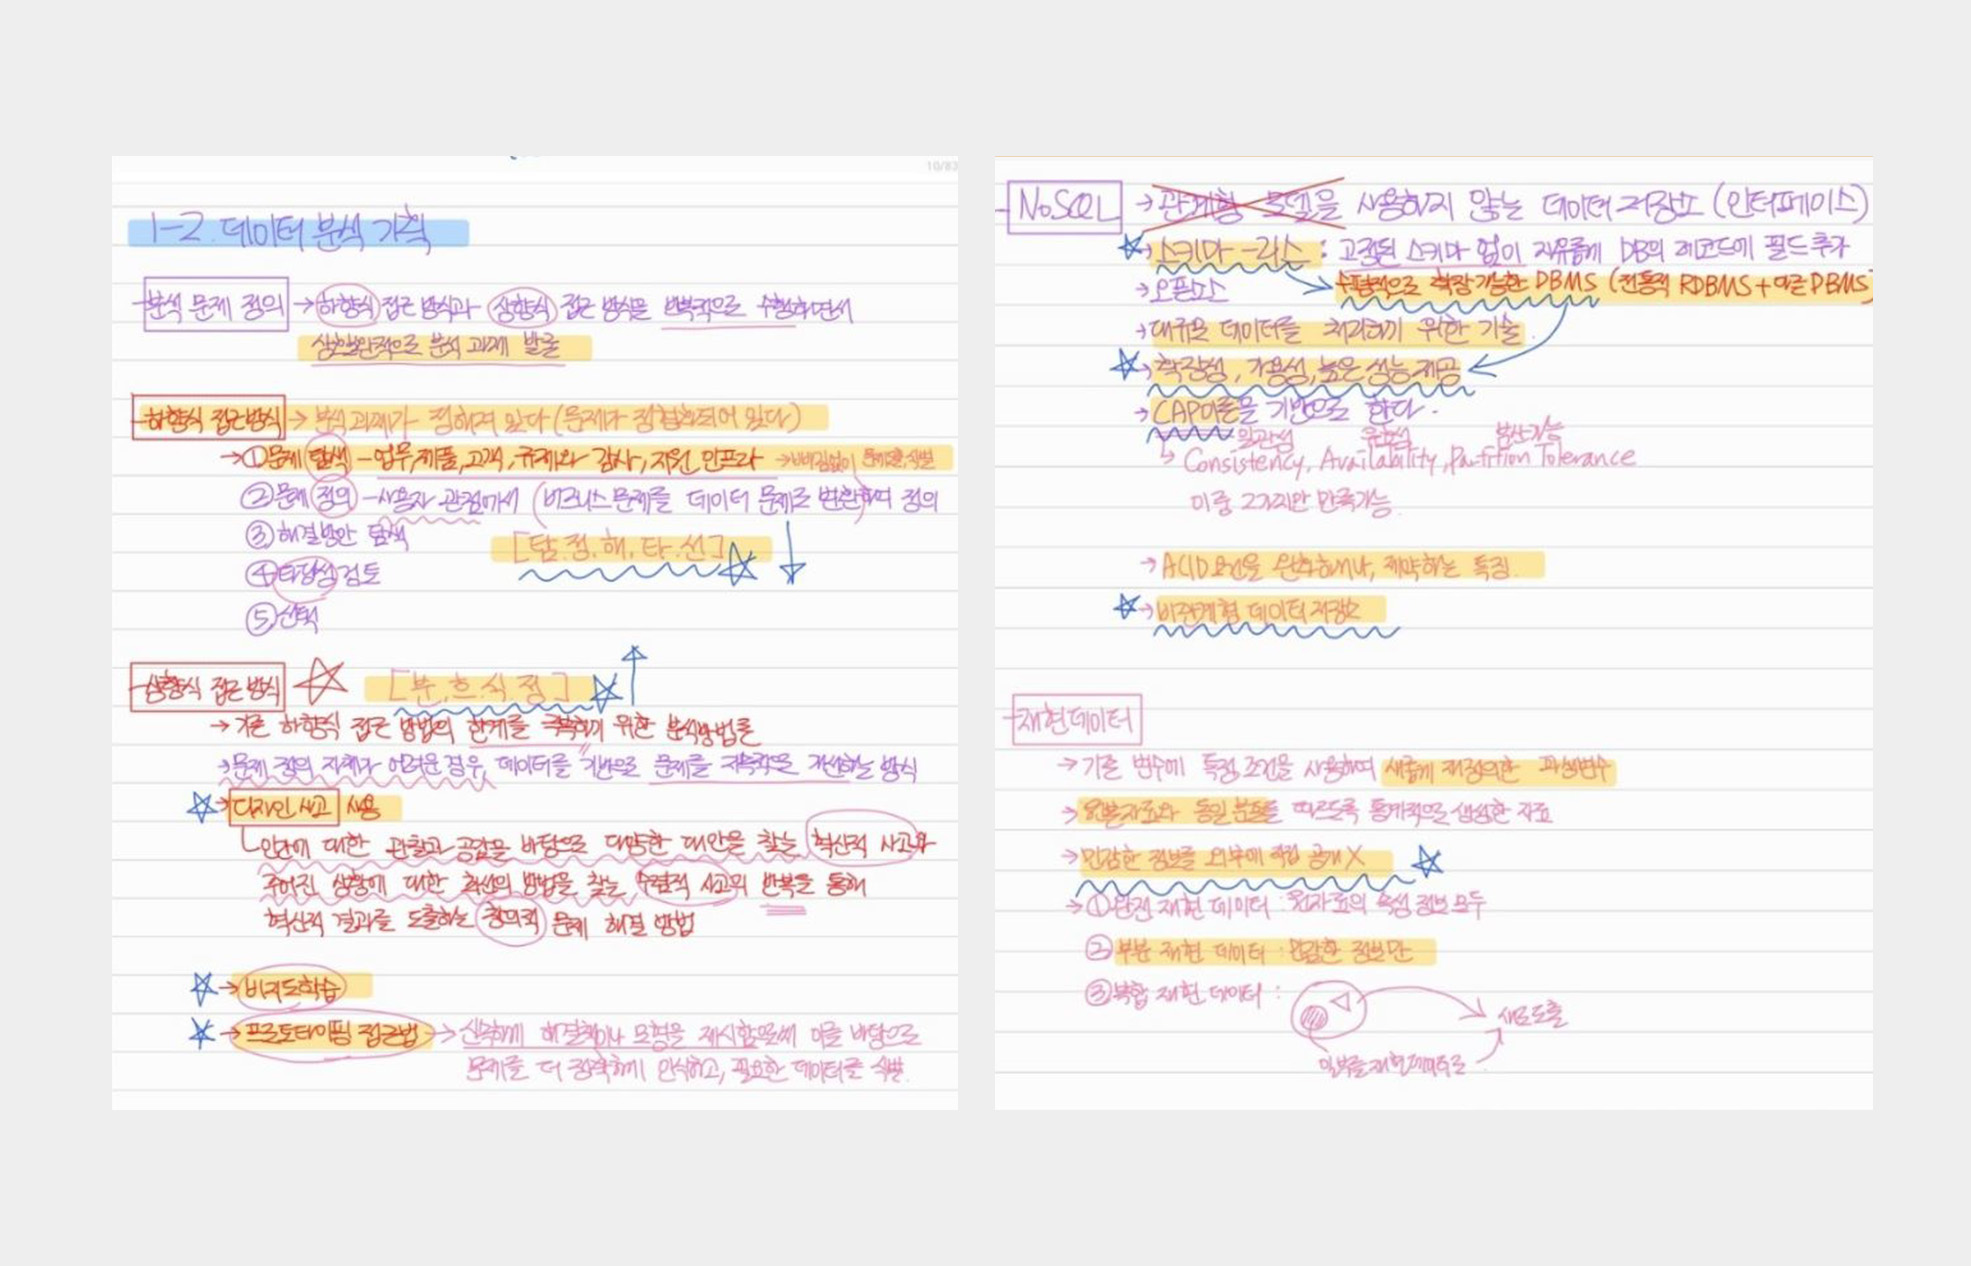 10/83
1-2. 데이터 분석 기획
분석 문제 정의 → 하향식 접근 방식과 상향식 접근 방식을 반복적으로 수행하면서
상호보완적으로 분석 과제 발굴
하향식 접근방식 → 분석 과제가 정해져 있다 (문제가 정형화되어 있다)
→ ① 문제 탐색 - 업무, 제품, 고객, 규제와 감사, 지원 인프라 → 빠짐없이 문제를 식별
② 문제 정의 - 사용자 관점에서 (비즈니스 문제를 데이터 문제로 변환)하여 정의
③ 해결방안 탐색
[탐.정.해.타.선]
④ 타당성 검토
⑤ 선택
상향식 접근 방식 [분.흐.식.정]
→ 기존 하향식 접근 방법의 한계를 극복하기 위한 분석방법론
→ 문제 정의 자체가 어려운 경우, 데이터를 기반으로 문제를 지속적으로 개선하는 방식
→ 디자인 사고 사용
인간에 대한 관찰과 공감을 바탕으로 다양한 대안을 찾는 확산적 사고와
주어진 상황에 대한 최선의 방법을 찾는 수렴적 사고의 반복을 통해
혁신적 결과를 도출하는 창의적 문제 해결 방법
→ 비지도학습
→ 프로토타이핑 접근법 → 신속하게 해결책이나 모형을 제시함으로써 이를 바탕으로
문제를 더 정확하게 인식하고, 필요한 데이터를 식별.
NoSQL → 관계형 모델을 사용하지 않는 데이터 저장소 (인터페이스)
→ 스키마-리스 : 고정된 스키마 없이 자유롭게 DB의 레코드에 필드 추가
→ 오픈소스 → 수평적으로 확장 가능한 DBMS (전통적 RDBMS + 다른 DBMS)
→ 대규모 데이터를 처리하기 위한 기술
→ 확장성, 가용성, 높은 성능 제공
→ CAP이론을 기반으로 한다.
일관성 유효성 분산가능
Consistency, Availability, Partition Tolerance
이중 2가지만 만족가능.
→ ACID 요건을 완화하거나, 제약하는 특징.
→ 비관계형 데이터 저장소
재현데이터
→ 기존 변수에 특정 조건을 사용하여 새롭게 재정의한 파생변수
→ 원본자료와 동일 분포를 따르도록 통계적으로 생성한 자료
→ 민감한 정보를 외부에 직접 공개 X
→ ① 완전 재현 데이터 : 원자료의 속성 정보 모두
② 부분 재현 데이터 : 민감한 정보만
③ 복합 재현 데이터 :
새로 도출
일부를 재현데이터로